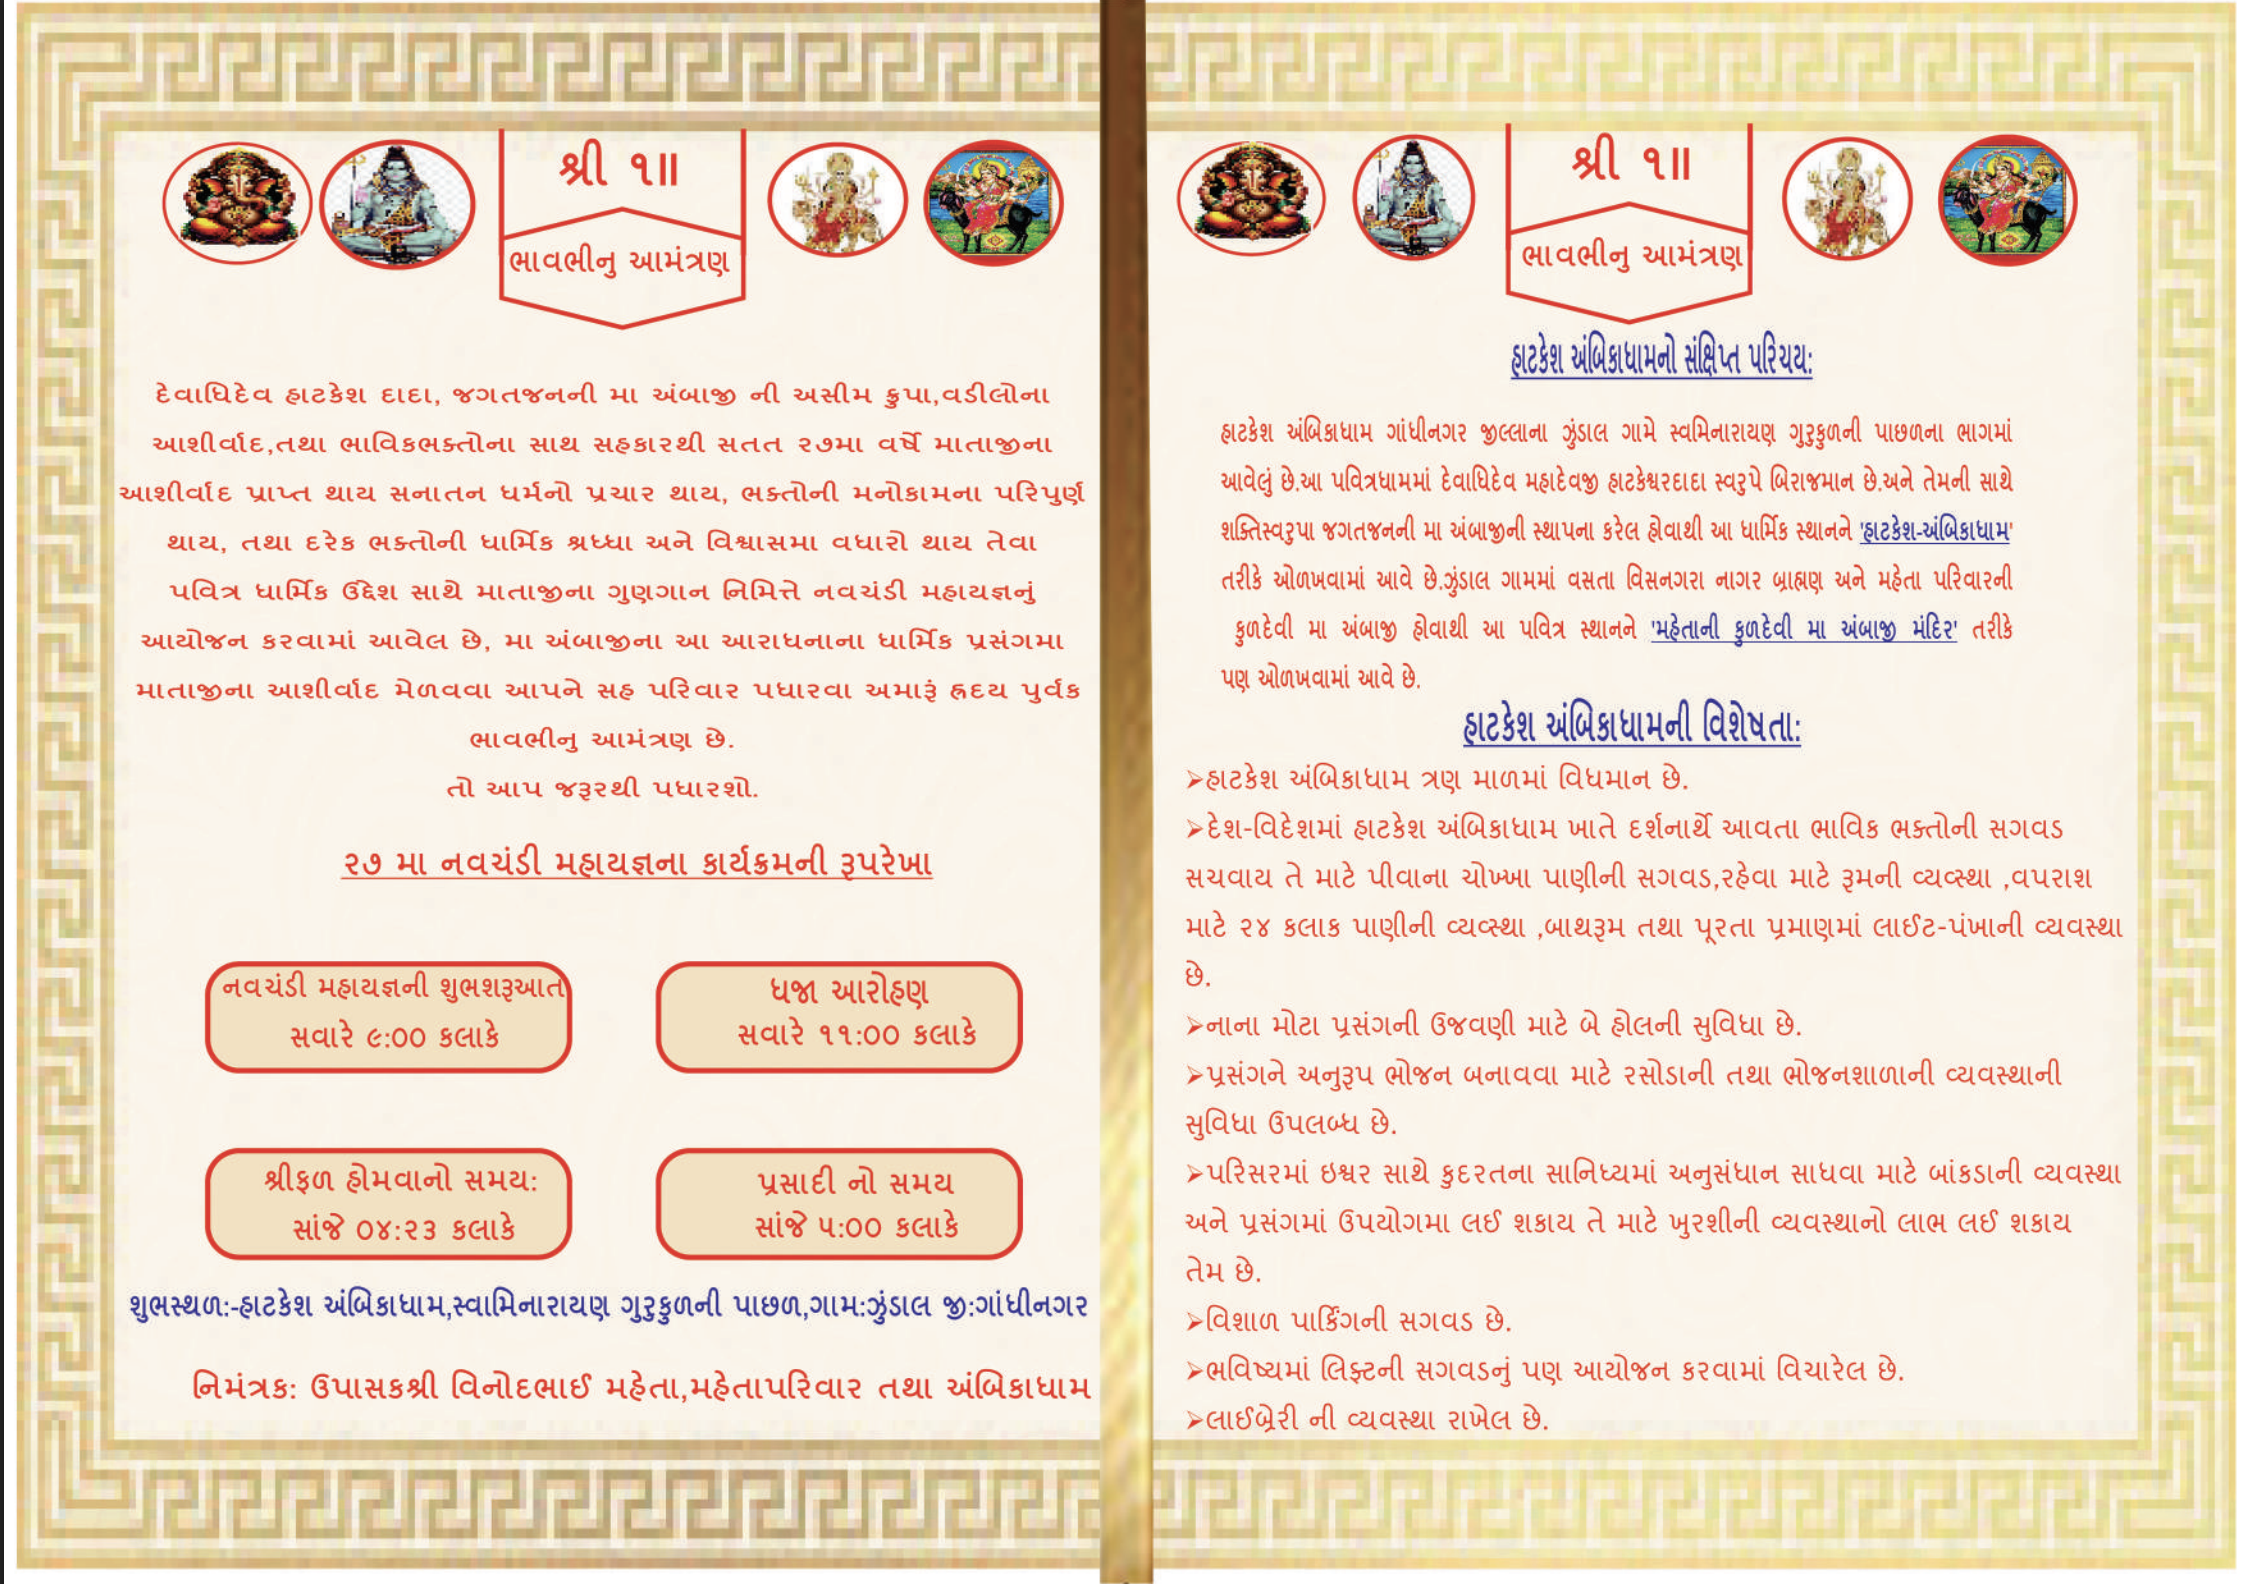 શ્રી ૧॥
ભાવભીનુ આમંત્રણ
દેવાધિદેવ હાટકેશ દાદા, જગતજનની મા અંબાજી ની અસીમ ક્રુપા,વડીલોના
આશીર્વાદ,તથા ભાવિકભક્તોના સાથ સહકારથી સતત ૨૭મા વર્ષે માતાજીના
આશીર્વાદ પ્રાપ્ત થાય સનાતન ધર્મનો પ્રચાર થાય, ભક્તોની મનોકામના પરિપુર્ણ
થાય, તથા દરેક ભક્તોની ધાર્મિક શ્રધ્ધા અને વિશ્વાસમા વધારો થાય તેવા
પવિત્ર ધાર્મિક ઉદ્દેશ સાથે માતાજીના ગુણગાન નિમિત્તે નવચંડી મહાયજ્ઞનું
આયોજન કરવામાં આવેલ છે, મા અંબાજીના આ આરાધનાના ધાર્મિક પ્રસંગમા
માતાજીના આશીર્વાદ મેળવવા આપને સહ પરિવાર પધારવા અમારૂં હ્રદય પુર્વક
ભાવભીનુ આમંત્રણ છે.
તો આપ જરૂરથી પધારશો.
૨૭ મા નવચંડી મહાયજ્ઞના કાર્યક્રમની રૂપરેખા
નવચંડી મહાયજ્ઞની શુભશરૂઆત
સવારે ૯:૦૦ કલાકે
ધજા આરોહણ
સવારે ૧૧:૦૦ કલાકે
શ્રીફળ હોમવાનો સમય:
સાંજે ૦૪:૨૩ કલાકે
પ્રસાદી નો સમય
સાંજે ૫:૦૦ કલાકે
શુભસ્થળ:-હાટકેશ અંબિકાધામ,સ્વામિનારાયણ ગુરુકુળની પાછળ,ગામ:ઝુંડાલ જી:ગાંધીનગર
નિમંત્રક: ઉપાસકશ્રી વિનોદભાઈ મહેતા,મહેતાપરિવાર તથા અંબિકાધામ
શ્રી ૧॥
ભાવભીનુ આમંત્રણ
હાટકેશ અંબિકાધામનો સંક્ષિપ્ત પરિચય:
હાટકેશ અંબિકાધામ ગાંધીનગર જીલ્લાના ઝુંડાલ ગામે સ્વમિનારાયણ ગુરુકુળની પાછળના ભાગમાં
આવેલું છે.આ પવિત્રધામમાં દેવાધિદેવ મહાદેવજી હાટકેશ્વરદાદા સ્વરુપે બિરાજમાન છે.અને તેમની સાથે
શક્તિસ્વરુપા જગતજનની મા અંબાજીની સ્થાપના કરેલ હોવાથી આ ધાર્મિક સ્થાનને 'હાટકેશ-અંબિકાધામ'
તરીકે ઓળખવામાં આવે છે.ઝુંડાલ ગામમાં વસતા વિસનગરા નાગર બ્રાહ્મણ અને મહેતા પરિવારની
કુળદેવી મા અંબાજી હોવાથી આ પવિત્ર સ્થાનને 'મહેતાની કુળદેવી મા અંબાજી મંદિર' તરીકે
પણ ઓળખવામાં આવે છે.
હાટકેશ અંબિકાધામની વિશેષતા:
➢હાટકેશ અંબિકાધામ ત્રણ માળમાં વિધમાન છે.
➢દેશ-વિદેશમાં હાટકેશ અંબિકાધામ ખાતે દર્શનાર્થે આવતા ભાવિક ભક્તોની સગવડ
સચવાય તે માટે પીવાના ચોખ્ખા પાણીની સગવડ,રહેવા માટે રૂમની વ્યવ્સ્થા ,વપરાશ
માટે ૨૪ કલાક પાણીની વ્યવ્સ્થા ,બાથરૂમ તથા પૂરતા પ્રમાણમાં લાઈટ-પંખાની વ્યવસ્થા
છે.
➢નાના મોટા પ્રસંગની ઉજવણી માટે બે હોલની સુવિધા છે.
➢પ્રસંગને અનુરૂપ ભોજન બનાવવા માટે રસોડાની તથા ભોજનશાળાની વ્યવસ્થાની
સુવિધા ઉપલબ્ધ છે.
➢પરિસરમાં ઇશ્વર સાથે કુદરતના સાનિધ્યમાં અનુસંધાન સાધવા માટે બાંકડાની વ્યવસ્થા
અને પ્રસંગમાં ઉપયોગમા લઈ શકાય તે માટે ખુરશીની વ્યવસ્થાનો લાભ લઈ શકાય
તેમ છે.
➢વિશાળ પાર્કિંગની સગવડ છે.
➢ભવિષ્યમાં લિફ્ટની સગવડનું પણ આયોજન કરવામાં વિચારેલ છે.
➢લાઈબ્રેરી ની વ્યવસ્થા રાખેલ છે.